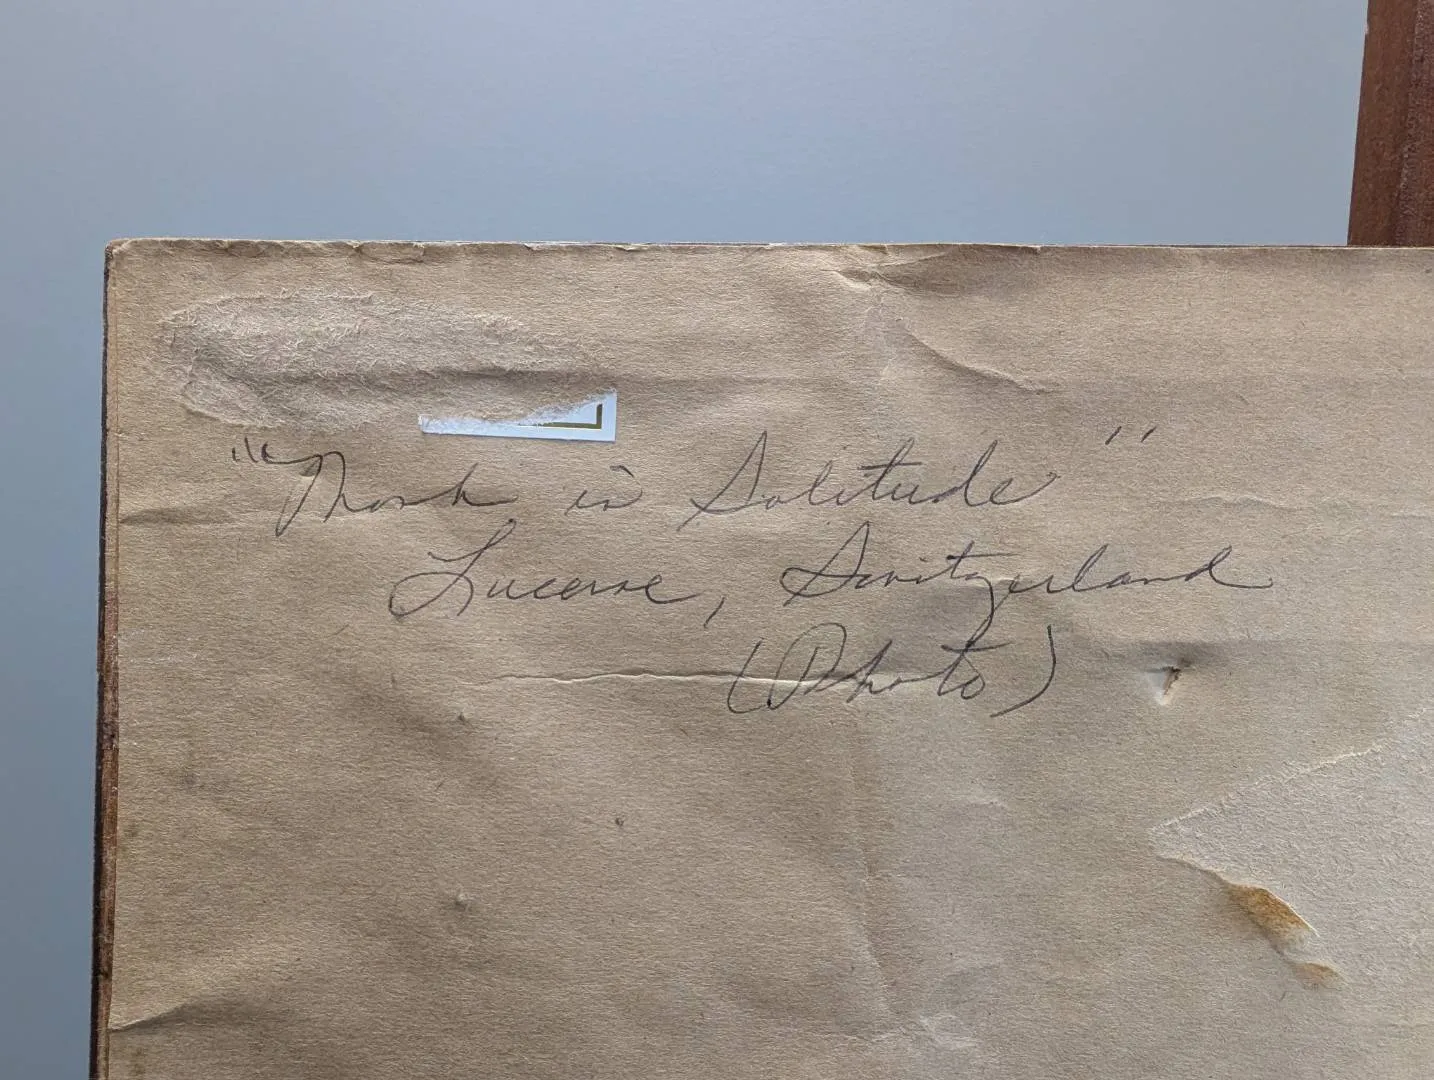 "Monk in Solitude"
Lucerne, Switzerland
(Photo)